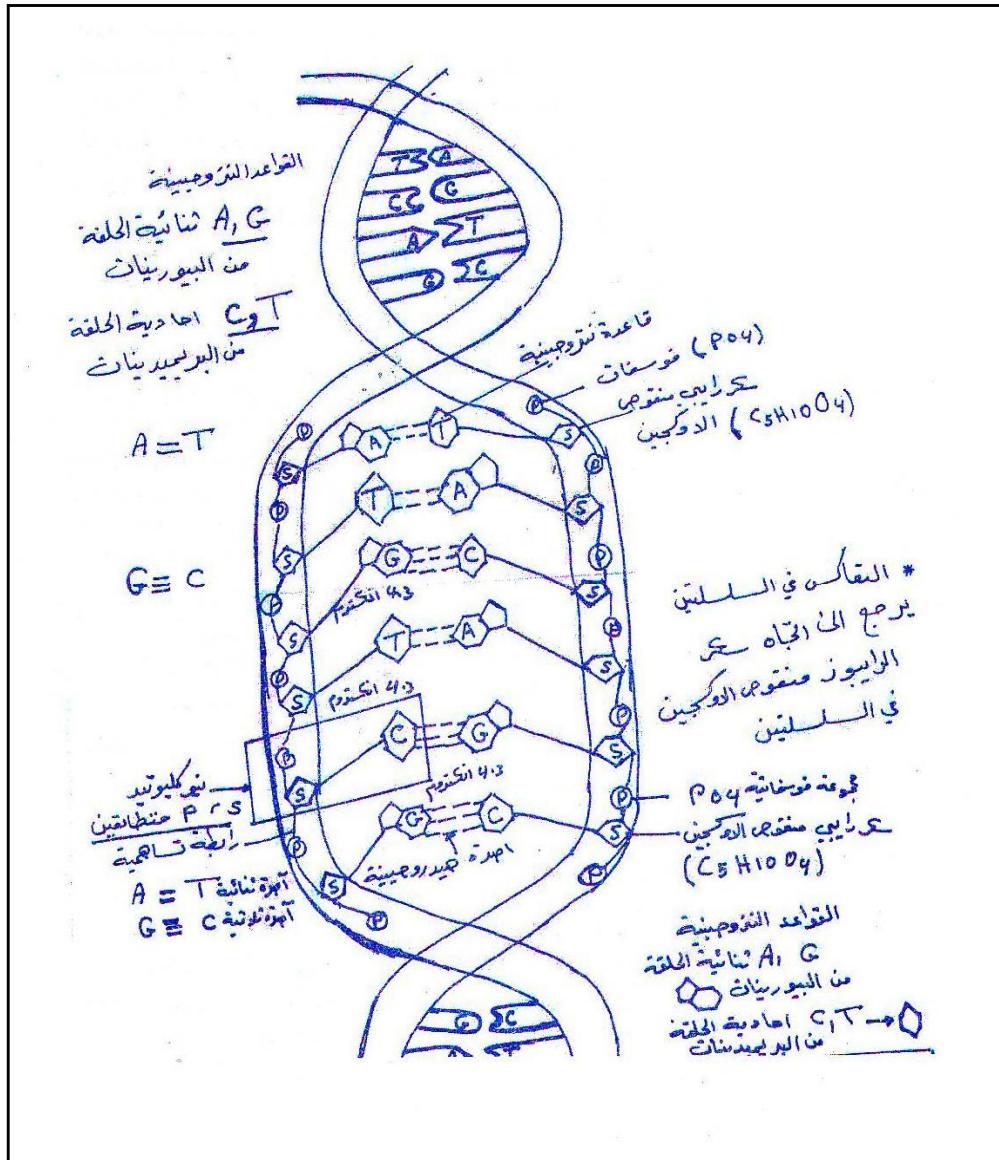 القواعد النتروجينية
A, G ثنائية الحلقة
من البيورينات
C و T احادية الحلقة
من البريميدينات
A = T
G ≡ C
T A
C G
A T
G C
قاعدة نتروجينية
فوسفات (PO4)
سكر رايبي منقوص
الاوكجين (C5H10O4)
P P
S A T S
P P
S T A S
P P
S G C S
4.3 انكستروم
P P
S T A S
4.3 انكستروم
P P
S C G S
4.3 انكستروم
P P
S G C S
P P
اصرة هيدروجينية
* التعاكس في السلسلتين
يرجع الى اتجاه سكر
الرايبوز منقوص الاوكجين
في السلسلتين
نيوكليوتيد
P , S
رابطة تساهمية
A = T آصرة ثنائية
G ≡ C آصرة ثلاثية
مجموعة فوسفاتية PO4
سكر رايبي منقوص الاوكجين
(C5H10O4)
القواعد النتروجينية
A, G ثنائية الحلقة
من البيورينات
C, T احادية الحلقة
من البريميدينات
G C
A T